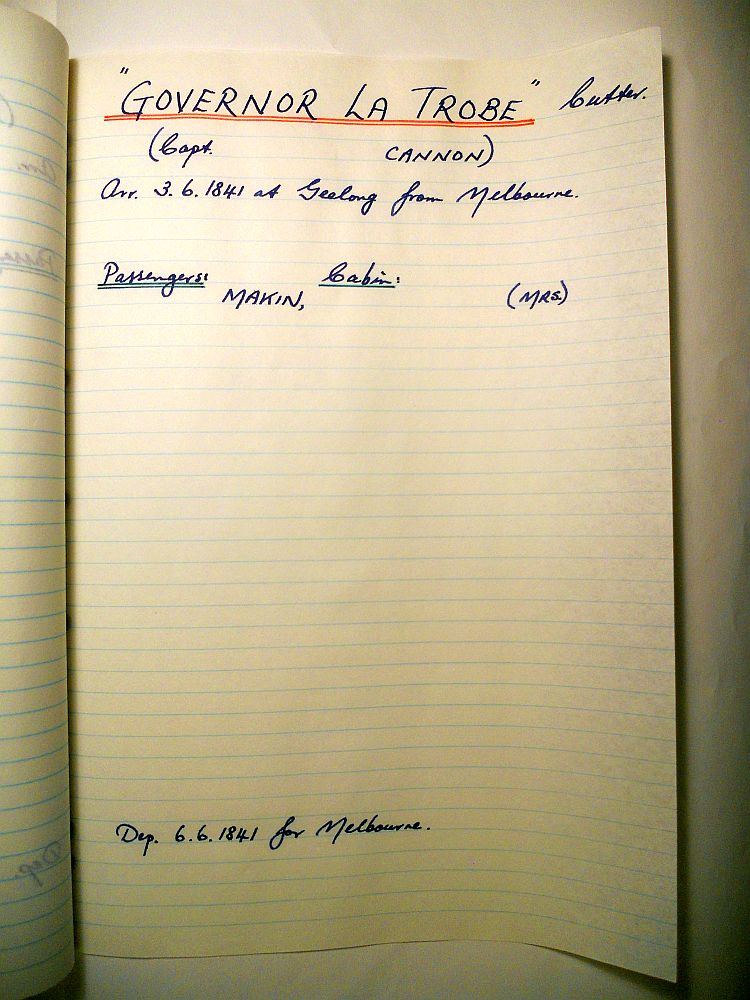 "GOVERNOR LA TROBE" Cutter.
(Capt. CANNON)
Arr. 3.6.1841 at Geelong from Melbourne.
Passengers: Cabin:
MAKIN, (MRS.)
Dep. 6.6.1841 for Melbourne.